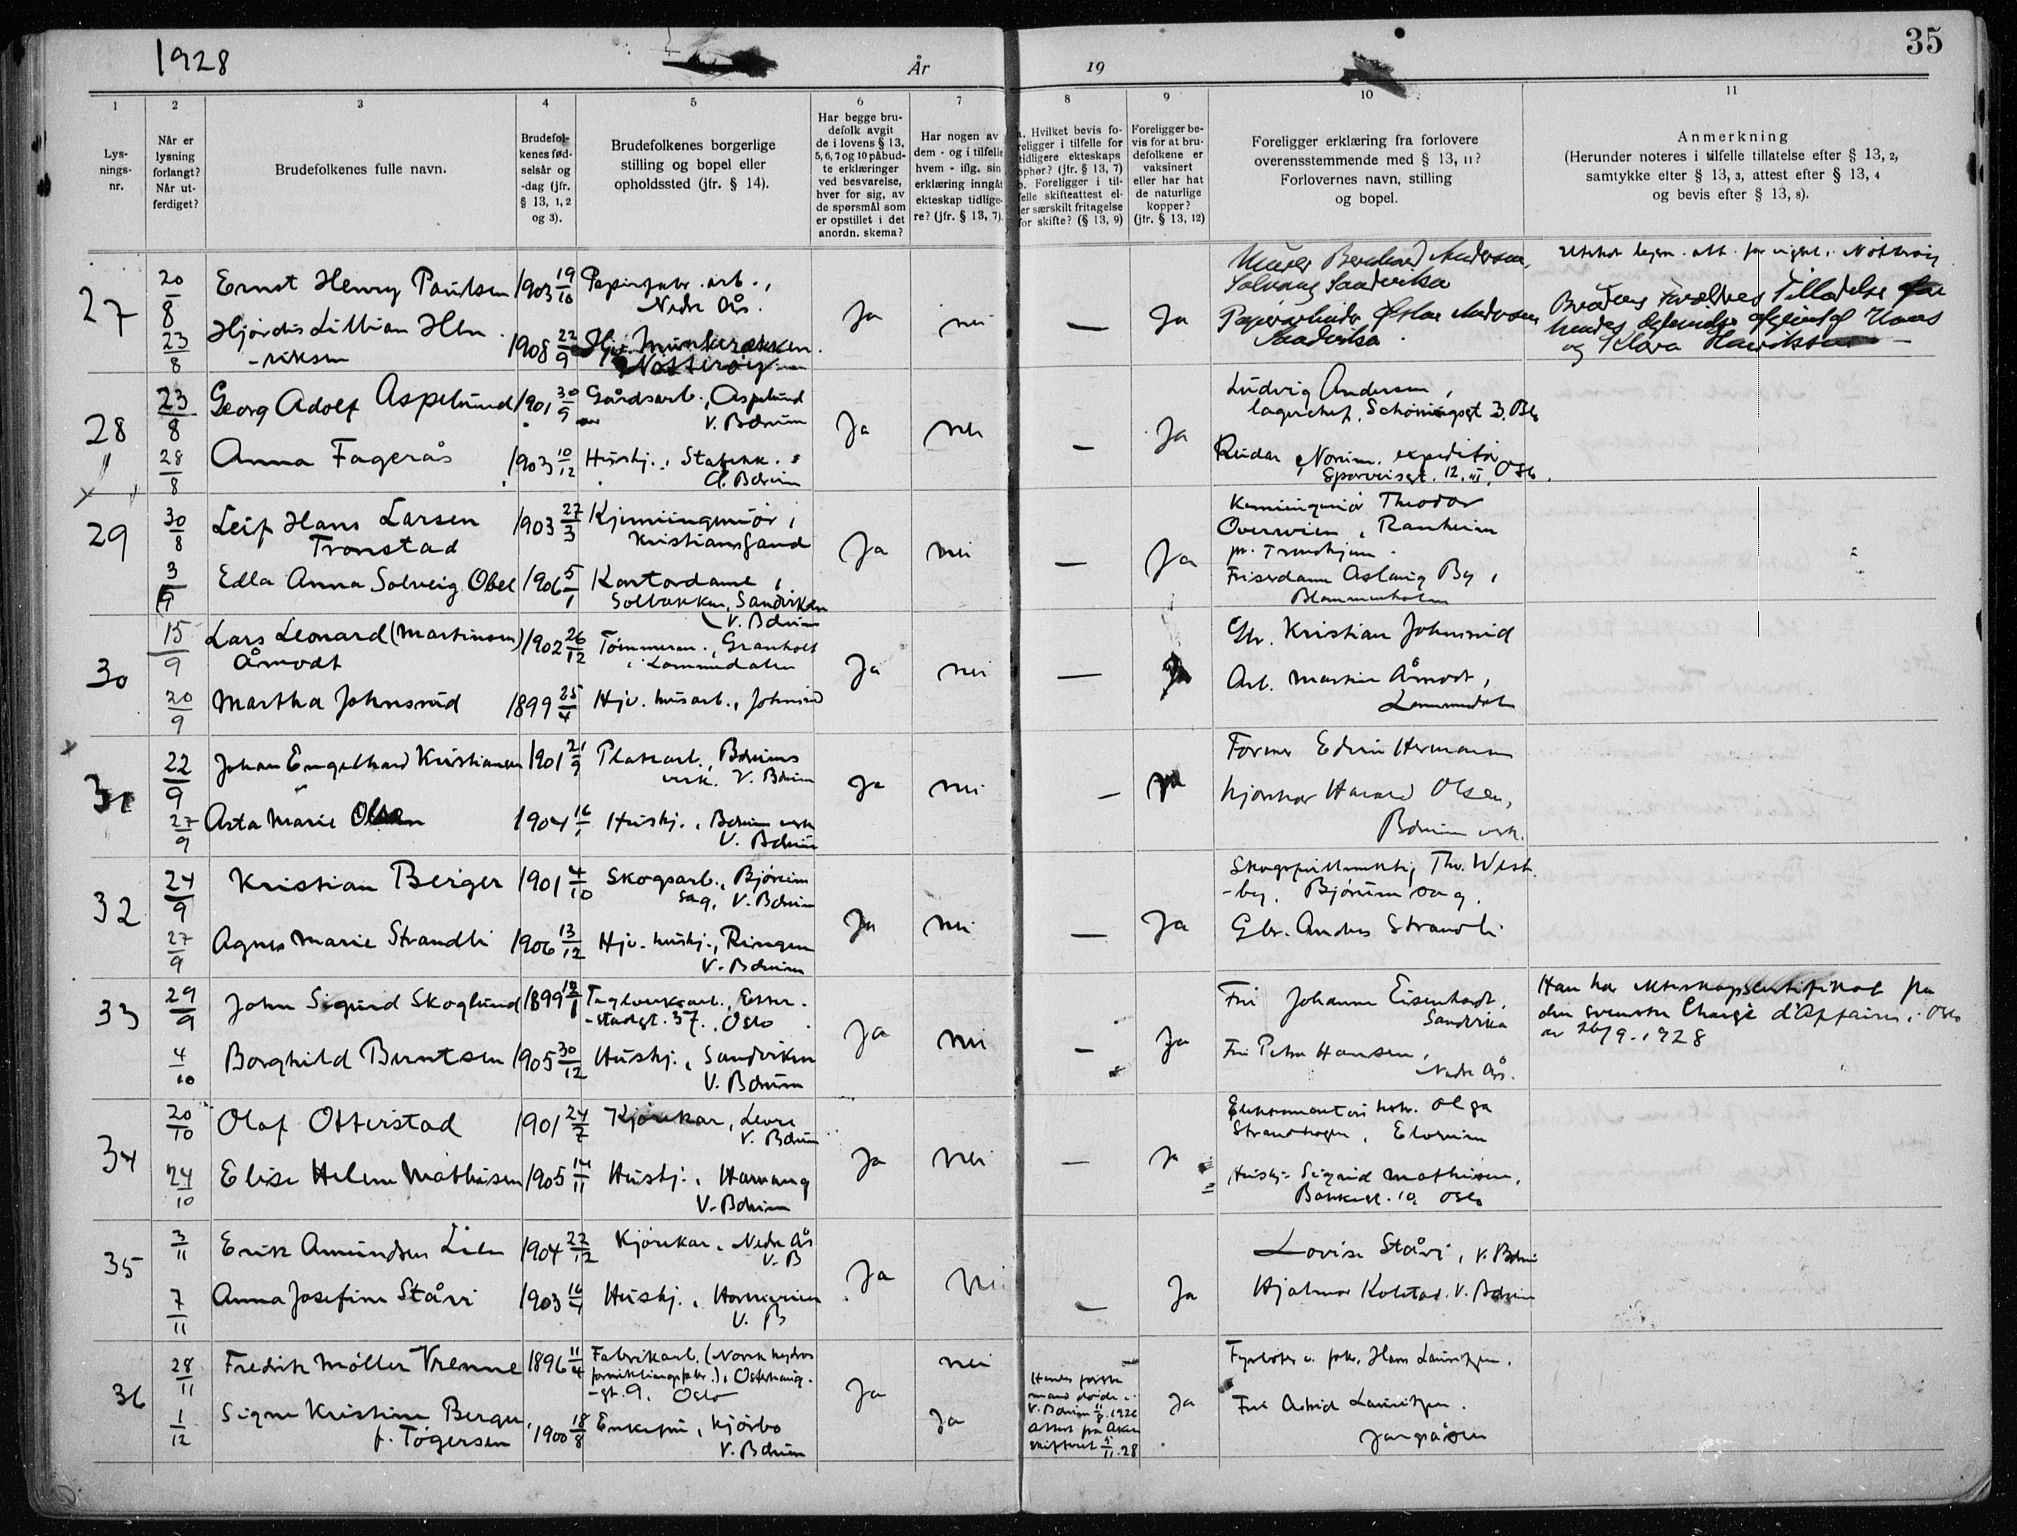 1928
År
19
35
1
2
3
4
5
6
7
8
9
10
11
Lysnings-nr.
Når er lysning forlangt? Når utferdiget?
Brudefolkenes fulle navn.
Brudefolkenes fødselsår og -dag (jfr. § 13, 1, 2 og 3).
Brudefolkenes borgerlige stilling og bopel eller opholdssted (jfr. § 14).
Har begge brudefolk avgit de i lovens § 13, 5, 6, 7 og 10 påbudte erklæringer ved besvarelse, hver for sig, av de spørsmål som er opstillet i det anordn. skema?
Har nogen av dem - og i tilfelle hvem - iflg. sin erklæring inngått ekteskap tidligere? (jfr. § 13, 7).
a. Hvilket bevis foreligger i tilfelle for tidligere ekteskaps ophør? (jfr. § 13, 7) b. Foreligger i tilfelle skifteattest eller særskilt fritagelse for skifte? (§ 13, 9)
Foreligger bevis for at brudefolkene er vaksinert eller har hat de naturlige kopper? (jfr. § 13, 12)
Foreligger erklæring fra forlovere overensstemmende med § 13, 11? Forlovernes navn, stilling og bopel.
Anmerkning
(Herunder noteres i tilfelle tillatelse efter § 13, 2, samtykke efter § 13, 3, attest efter § 13, 4 og bevis efter § 13, 8).
27
20/8
Ernst Henry Paulsen
1903 19/10
Papirfabr. arb.,
Nedre Ås.
23/8
Hjördis Lillian Hen
-riksen
1908 22/9
Nötteröy
Ja
nei
—
Ja
Murer Bernhard Andersen,
Solvang Sandvika
Papirarbeider Oskar Andersen
Sandvika.
Brudens Foreldres Tilladelse
og Klara Henriksen
28
23/8
Georg Adolf Aspelund
1901 30/9
Gårdsarb., Aspelund
V. Bærum
28/8
Anna Fagerås
1903 10/12
Hushj., Stabekk.
Ø. Bærum
Ja
nei
—
Ja
Ludvig Andersen,
lagerchef, Schöningsgt 3. Oslo
Reidar Norum, expeditör
Sporveisgt. 12. III, Oslo.
29
30/8
Leif Hans Larsen
Tronstad
1903 27/3
Kjemiingeniör,
Kristiansand
3/9
Edla Anna Solveig Obel
1906 5/1
Kontordame,
Solbakken, Sandviken
V. Bærum
Ja
nei
—
Ja
Kemiingeniör Theodor
Overwien, Ranheim
pr. Trondhjem.
Frisördame Aslaug By,
Blommenholm
30
15/9
Lars Leonard (Martinsen)
Åmodt
1902 26/12
Tömmerm., Granholt
i Lommedalen
20/9
Martha Johnsrud
1899 25/4
Hjv. husarb., Johnsrud
Ja
nei
—
Ja
Gbr. Kristian Johnsrud
Arb. Martin Åmodt,
Lommedalen
31
22/9
Johan Engelhard Kristiansen
1901 21/9
Platearb., Bærums
verk. V. Bærum
27/9
Asta Marie Olsen
1904 16/1
Hushj., Bærum verk
V. Bærum
Ja
nei
—
Ja
Former Edvin Hermansen
Kjörekar Harald Olsen,
Bærum verk.
32
24/9
Kristian Berger
1901 4/10
Skogsarb., Bjørum
sag, V. Bærum
27/9
Agnes Marie Strandli
1906 13/12
Hjv. hushj., Ringen
V. Bærum
Ja
nei
—
Ja
Skogsfullmektig Thv. West-
-by, Bjørum sag.
Gbr. Anders Strandli
33
29/9
John Sigurd Skoglund
1899 18/1
Teglverksarb., Etter-
-stadgt. 37., Oslo
4/10
Borghild Berntsen
1905 30/12
Hushj., Sandviken
V. Bærum
Ja
nei
—
Ja
Fru Johanne Eisenhardt,
Sandvika
Fru Petra Hansen,
Nedre Ås.
Han har ekteskapscertifikat fra
den svenske Chargé d'Affaires i Oslo
av 26/9. 1928
34
20/10
Olaf Otterstad
1901 24/7
Kjörekar, Levre
V. Bærum
24/10
Elise Helene Mathisen
1905 14/11
Hushj., Hamang
V. Bærum
Ja
nei
—
Ja
Olga
Strandhagen, Elverum
Hushj. Sigrid Mathisen,
Bakkegt. 10, Oslo
35
3/11
Erik Amundsen Lien
1904 22/12
Kjörekar, Nedre Ås
V. B
7/11
Anna Josefine Ståvi
1903 16/4
Hushj.,
V. B
Ja
nei
—
Ja
Lovise Ståvi, V. Bærum
Hjalmar Kolstad. V. Bærum
36
28/11
Fredrik Møller Vrenne
1896 11/4
Fabrikarb. (Norsk hydros
forniklingsfabr.), Österhaug-
-gt. 9, Oslo
1/12
Signe Kristine Berger,
f. Tögersen
1900 18/8
Enkefru, Kjørbo
V. Bærum
Ja
nei
Ja
—
Hendes første
mand døde i
V. Bærum 11/8. 1926
Attest fra Aker
skifteret 5/11. 28
Ja
Fyrböter v. fabr. Hans Lauritzen.
Fru Astrid Lauritzen.
Jongsåsen